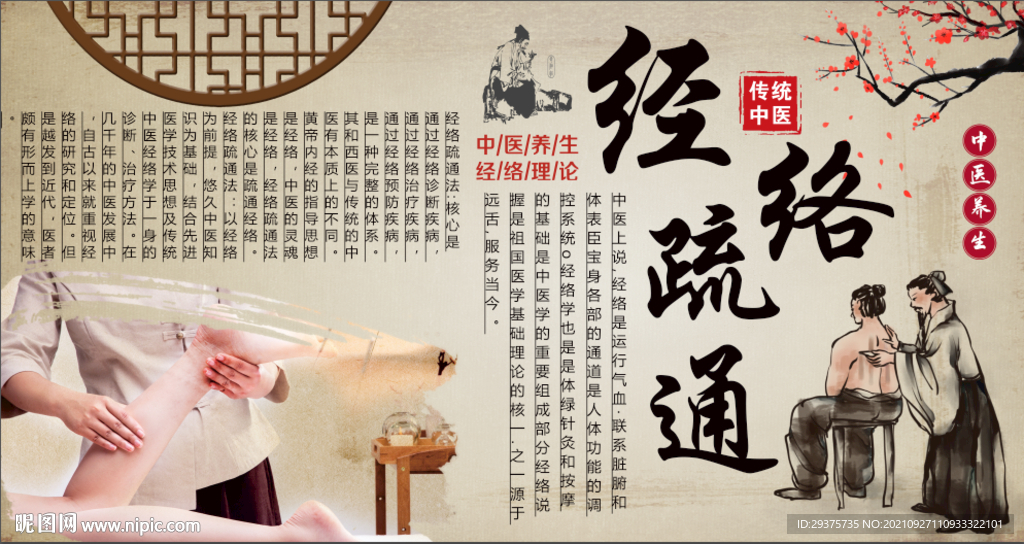 经络疏通
传统
中医
中医养生
中/医/养/生
经/络/理/论
中医上说,经络是运行气血·联系脏腑和
体表臣宝身各部的通道是人体功能的调
控系统o经络学也是是体绿针灸和按摩
的基础是中医学的重要组成部分经络说
握是祖国医学基础理论的核一.之一源于
远舌,服务当今。
经络疏通法:核心是
通过经络诊断疾病，
通过经络治疗疾病，
通过经络预防疾病，
是一种完整的体系。
其和西医与传统的中
医有本质上的不同。
黄帝内经的指导思想
是经络，中医的灵魂
是经络，经络疏通法
的核心是疏通经络。
经络疏通法：以经络
为前提，悠久中医知
识为基础，结合先进
医学技术思想及传统
中医经络学于一身的
诊断、治疗方法。在
几千年的中医发展中
，自古以来就重视经
络的研究和定位。但
是越发到近代，医者
颇有形而上学的意味
昵图网 www.nipic.com
ID:29375735 NO:20210927110933322101